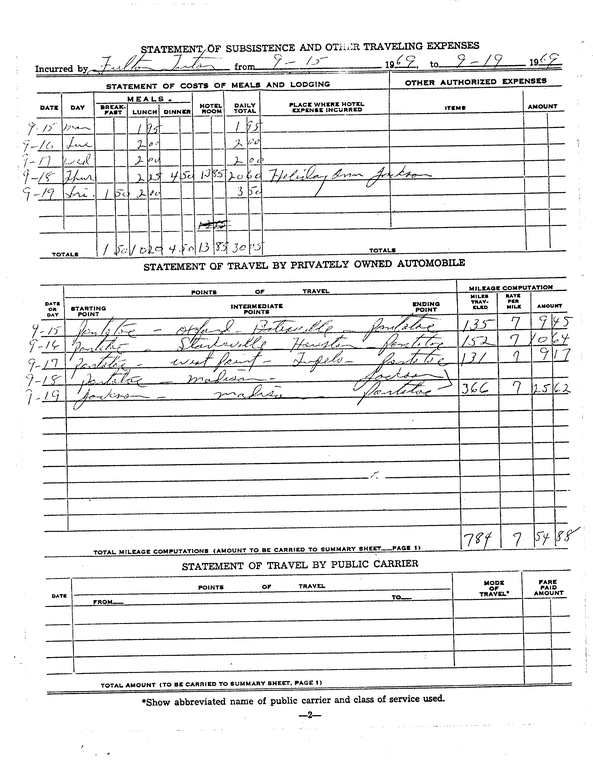 STATEMENT OF SUBSISTENCE AND OTHER TRAVELING EXPENSES
Incurred by Fulton from 9-15 1969 to 9-19 1969
STATEMENT OF COSTS OF MEALS AND LODGING OTHER AUTHORIZED EXPENSES
MEALS.
DATE DAY BREAK-FAST LUNCH DINNER HOTEL ROOM DAILY TOTAL PLACE WHERE HOTEL EXPENSE INCURRED ITEMS AMOUNT
9-15 Mon 1 95 1 95
9-16 Tue 2 00 2 00
9-17 Wed 2 00 2 00
9-18 Thur 2 25 4 50 13 85 20 60 Holiday Inn Jackson
9-19 Fri. 1 50 2 00 3 50
TOTALS 1 50 10 20 4 50 13 85 30 05 TOTALS
STATEMENT OF TRAVEL BY PRIVATELY OWNED AUTOMOBILE
POINTS OF TRAVEL MILEAGE COMPUTATION
DATE OR DAY STARTING POINT INTERMEDIATE POINTS ENDING POINT MILES TRAV-ELED RATE PER MILE AMOUNT
9-15 Pontotoc - Oxford - Batesville - Pontotoc 135 7 9 45
9-16 Pontotoc - Starkville Houston - Pontotoc 152 7 10 64
9-17 Pontotoc - West Point - Tupelo - Pontotoc 131 7 9 17
9-18 Pontotoc - Madison - Jackson
9-19 Jackson - Madison Pontotoc 366 7 25 62
TOTAL MILEAGE COMPUTATIONS (AMOUNT TO BE CARRIED TO SUMMARY SHEET PAGE 1) 784 7 54 88
STATEMENT OF TRAVEL BY PUBLIC CARRIER
DATE POINTS OF TRAVEL MODE OF TRAVEL* FARE PAID AMOUNT
FROM TO
TOTAL AMOUNT (TO BE CARRIED TO SUMMARY SHEET, PAGE 1)
*Show abbreviated name of public carrier and class of service used.
—2—